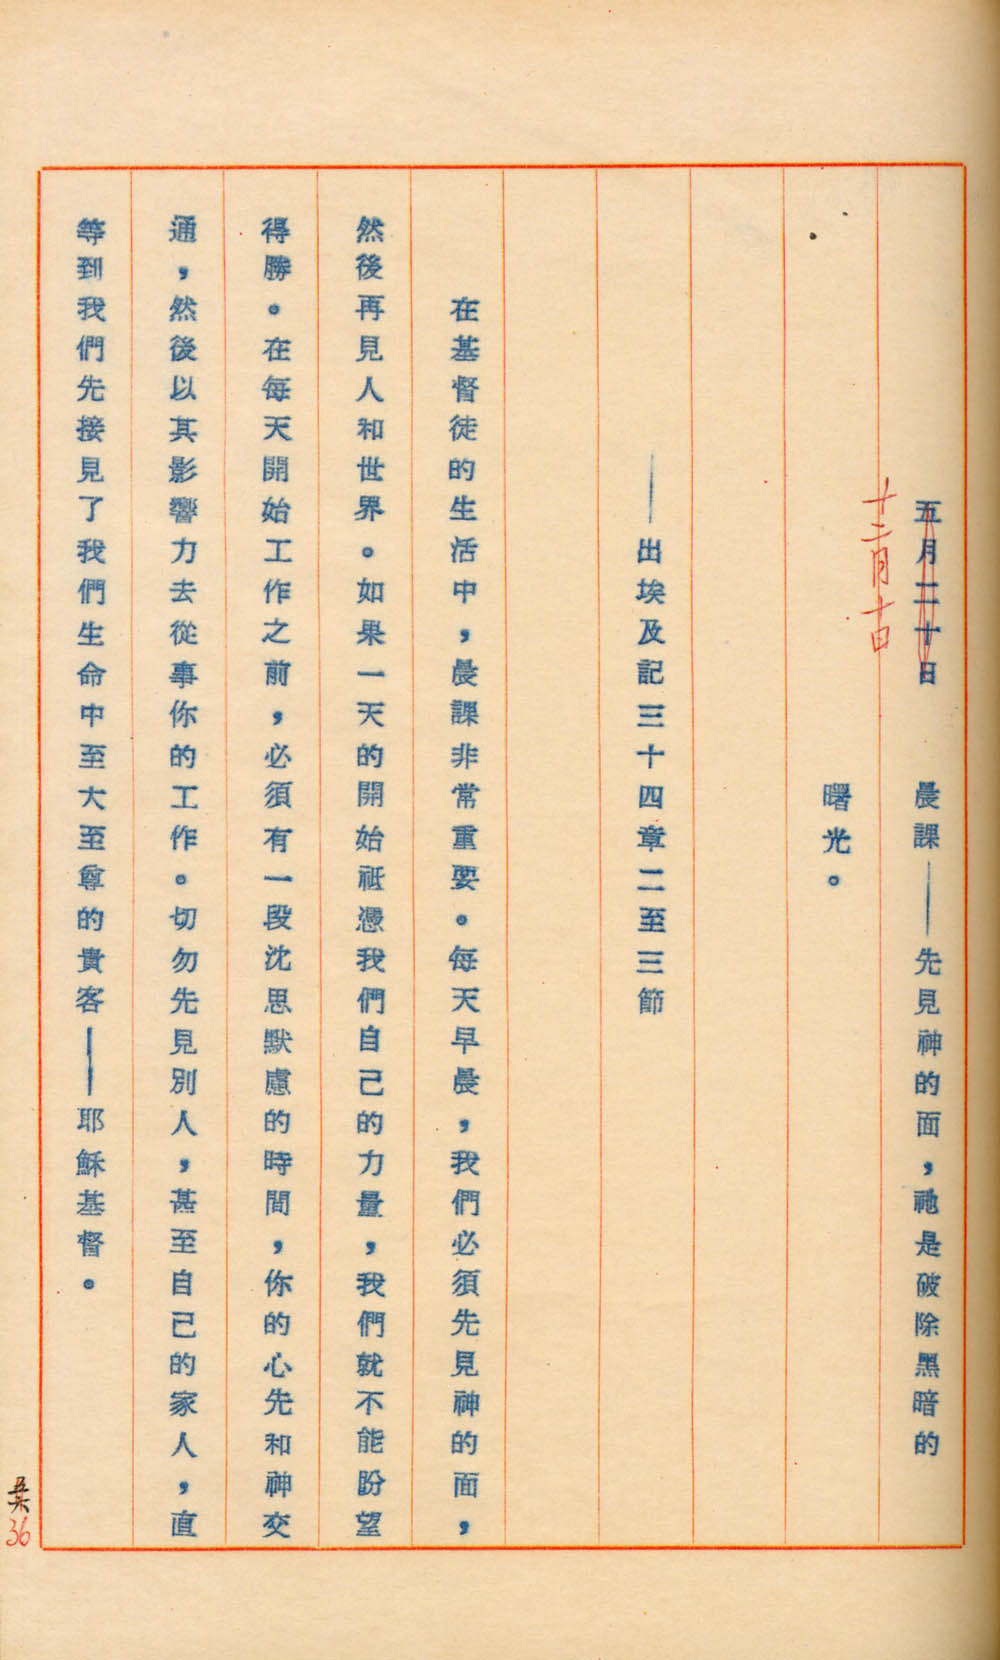 五月二十日　晨課——先見神的面，祂是破除黑暗的
十二月十日
曙光。
——出埃及記三十四章二至三節
在基督徒的生活中，晨課非常重要。每天早晨，我們必須先見神的面，
然後再見人和世界。如果一天的開始祗憑我們自己的力量，我們就不能盼望
得勝。在每天開始工作之前，必須有一段沈思默慮的時間，你的心先和神交
通，然後以其影響力去從事你的工作。切勿先見別人，甚至自己的家人，直
等到我們先接見了我們生命中至大至尊的貴客——耶穌基督。
36